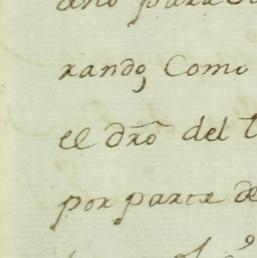 año para
rando, Como
el dr̃o del
por parte de